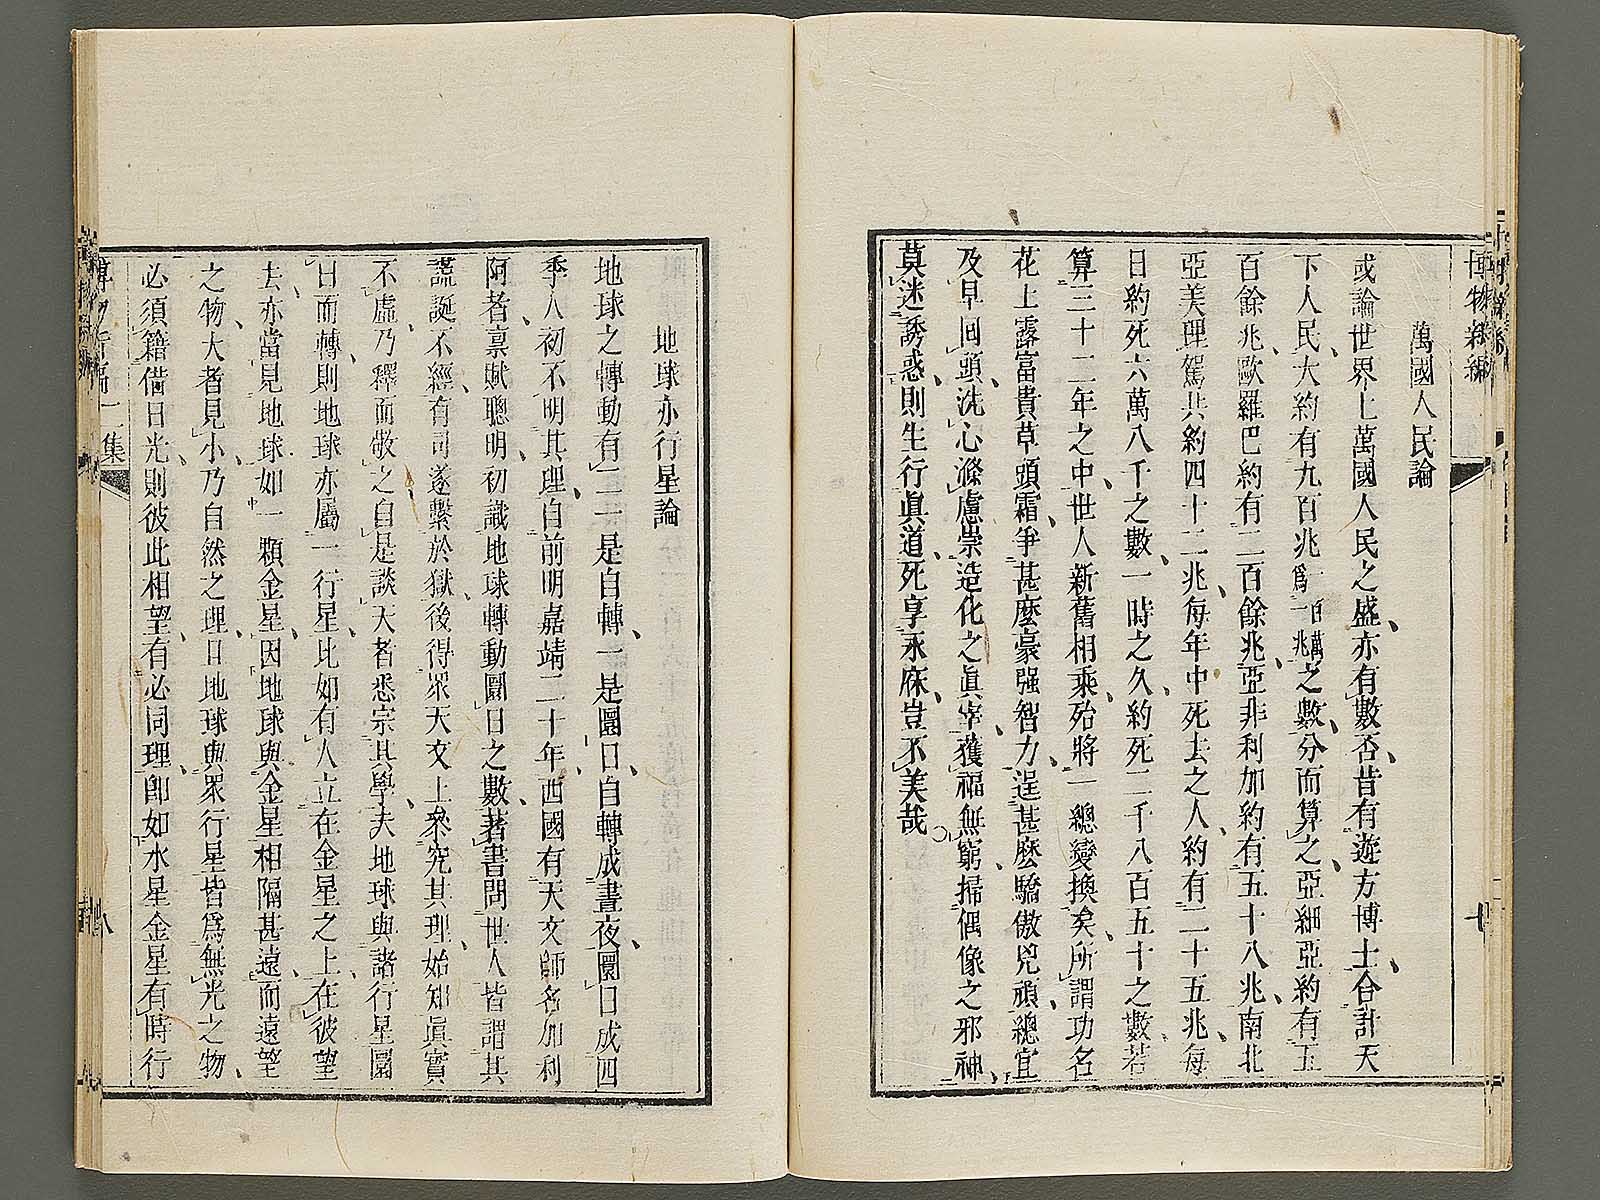 萬國人民論
或論世界上萬國人民之盛亦有數否昔有遊方博士合計天
下人民大約有九百兆一百萬爲一兆之數分而算之亞細亞約有五
百餘兆歐羅巴約有二百餘兆亞非利加約有五十八兆南北
亞美理駕共約四十二兆每年中死去之人約有二十五兆每
日約死六萬八千之數一時之久約死二千八百五十之數若
算三十二年之中世人新舊相乘殆將一總變換矣所謂功名
花上露富貴草頭霜爭甚麼豪强智力逞甚麽驕傲兇頑總宜
及早回頭洗心滌慮崇造化之眞宰獲福無窮掃偶像之邪神
莫迷誘惑則生行眞道死享永庥豈不美哉
地球亦行星論
地球之轉動有二一是自轉一是圜日自轉成晝夜圜日成四
季人初不明其理自前明嘉靖二十年西國有天文師名加利
阿者禀賦聰明初識地球轉動圜日之數著書問世人皆謂其
謊誕不經有司遂繫於獄後得眾天文士參究其理始知眞實
不虛乃釋而敬之自是談天者悉宗其學夫地球與諸行星圜
日而轉則地球亦屬一行星比如有人立在金星之上在彼望
去亦當見地球如一顆金星因地球與金星相隔甚遠而遠望
之物大者見小乃自然之理日地球與眾行星皆爲無光之物
必須籍借日光則彼此相望有必同理卽如水星金星有時行
博物新編二集